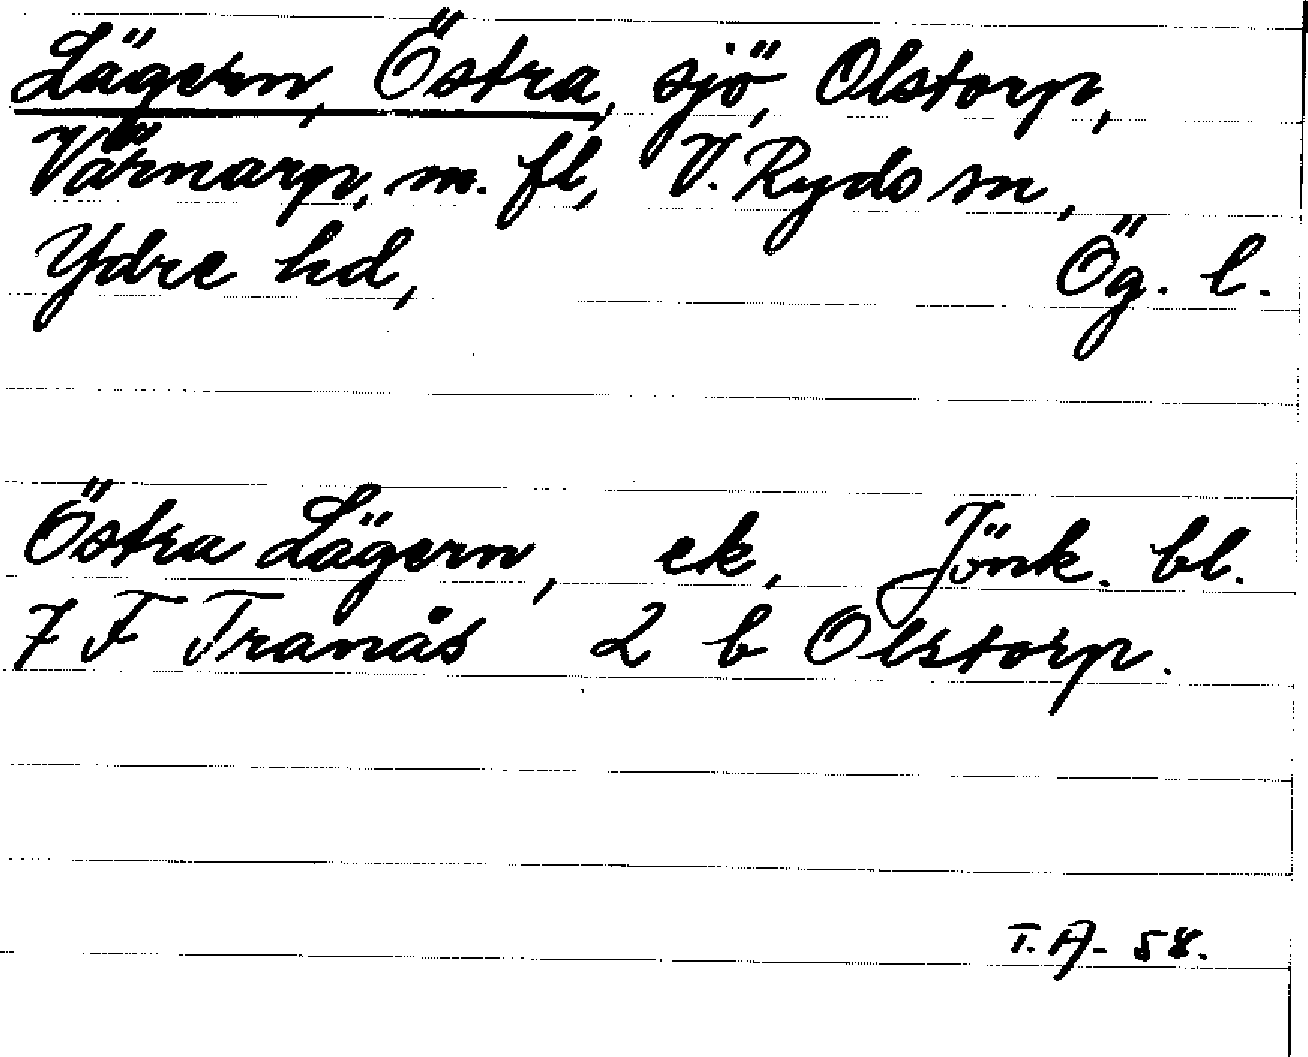 Lägern, Östra, sjö, Olstorp,
Värnarp, m. fl, V. Ryds sn,
Ydre hd, Ög. l.
Östra Lägern, ek, Jönk. bl.
7 F Tranås 2 b Olstorp.
T.A. 58.